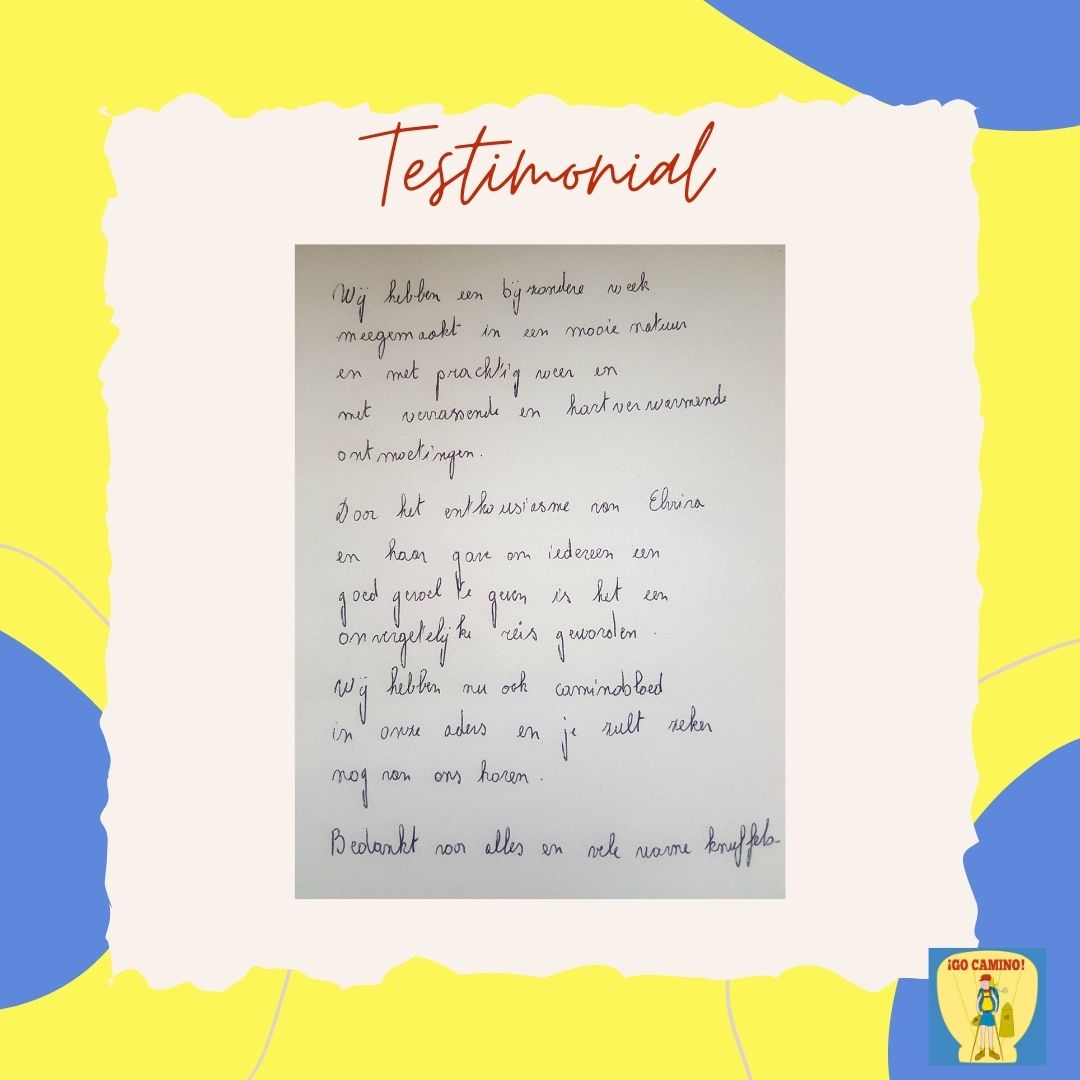 Testimonial
Wij hebben een bijzondere week
meegemaakt in een mooie natuur
en met prachtig weer en
met verrassende en hartverwarmende
ontmoetingen.
Door het enthousiasme van Elvira
en haar gave om iedereen een
goed gevoel te geven is het een
onvergetelijke reis geworden.
Wij hebben nu ook caminobloed
in onze aders en je zult zeker
nog van ons horen.
Bedankt voor alles en vele warme knuffels
¡GO CAMINO!